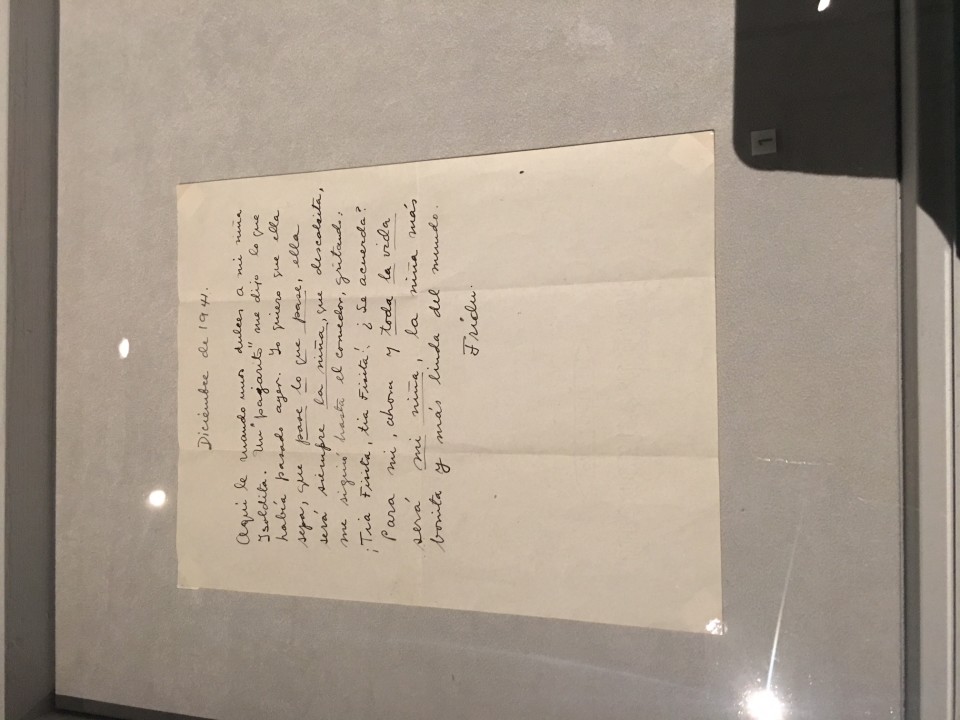 Diciembre de 1941.
Aqui le mando unos dulces a mi niña
Isoldita. Un "pajarito" me dijo lo que
había pasado ayer. Yo quiero que ella
sepa, que pase lo que pase, ella
será siempre la niña, que descalcita,
me siguió hasta el comedor, gritando:
¡Tia Fisita, tia Fisita! ¿Se acuerda?
Para mi, ahora y toda la vida
será mi niña, la niña más
bonita y más linda del mundo.
Fridu.
1